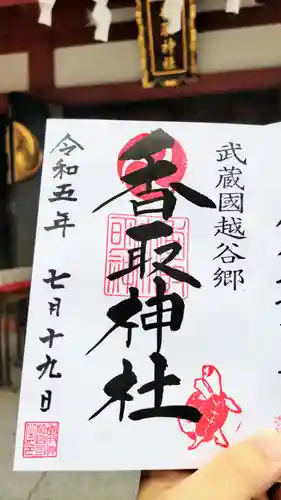 武蔵國越谷郷
香取神社
令和五年 七月十九日